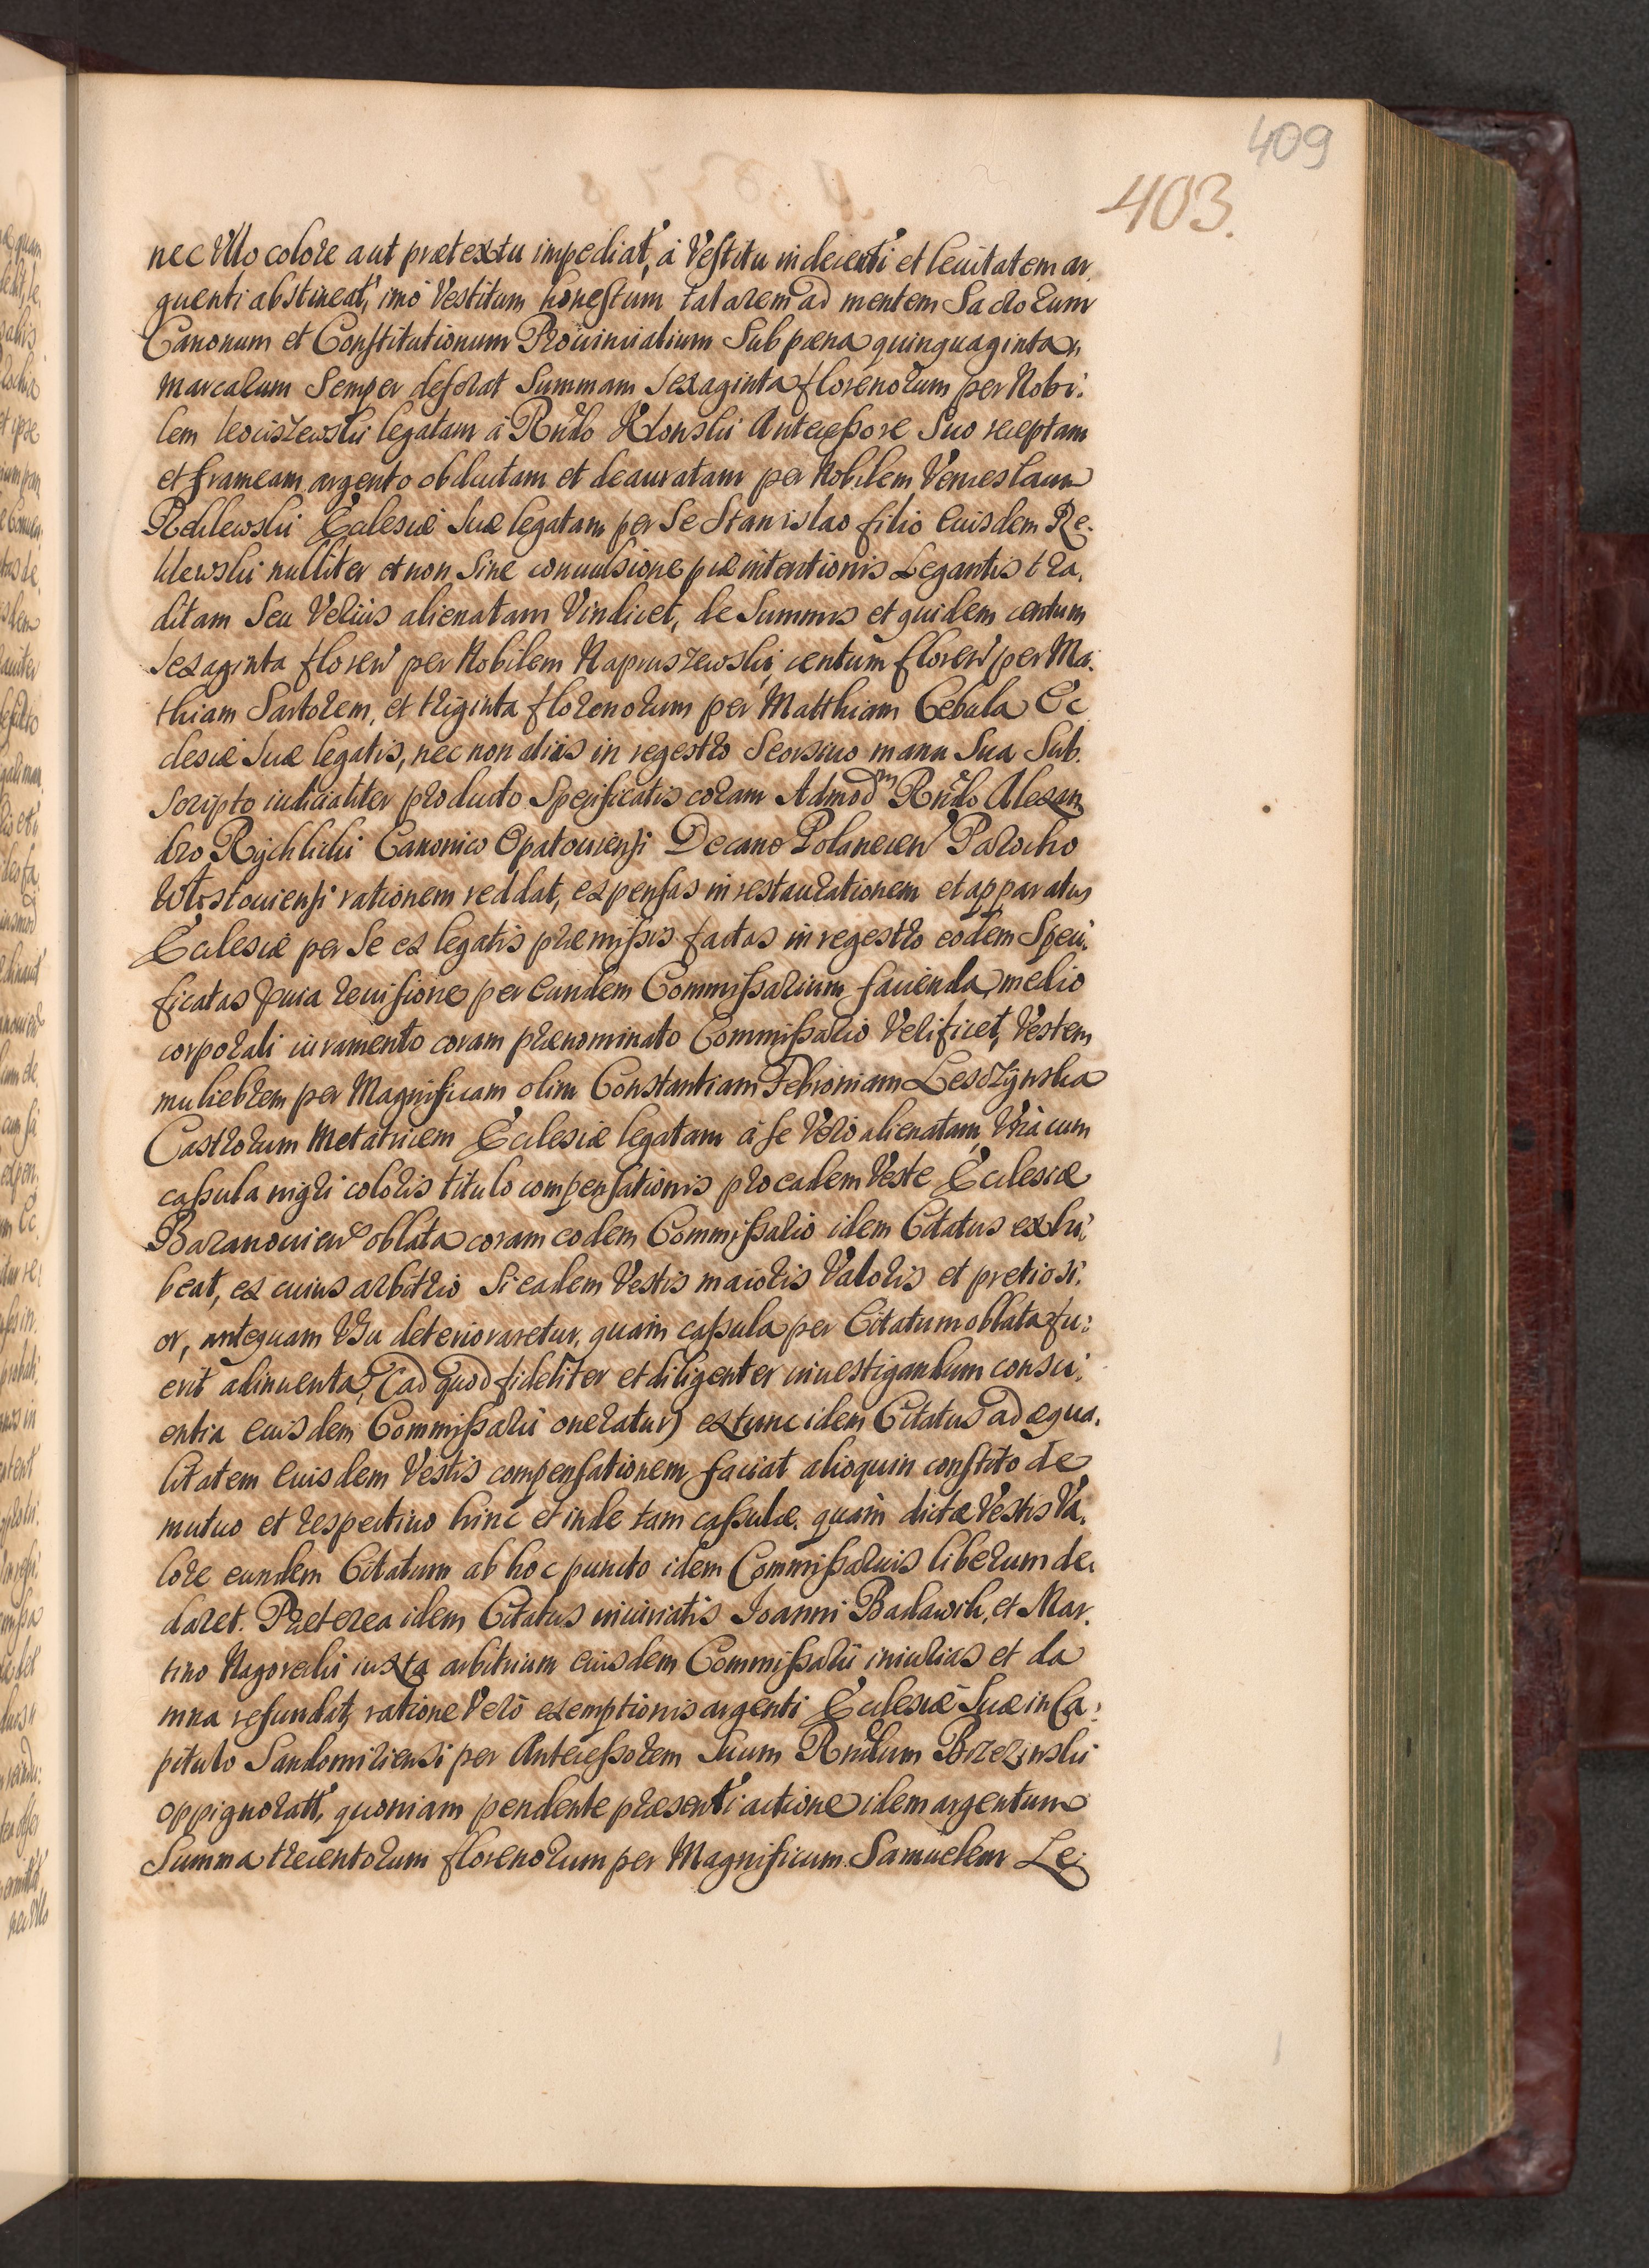 409
403.
nec Ullo colore aut prætextu impediat, à Vestitu indecenti et leuitatem ar,
guenti abstineat, imò Vestitum honestum talarem ad mentem Sacrorum
Canonum et Constitutionum Prouincialium Sub pœna quinquaginta
marcarum Semper deferat Summam Sexaginta florenorum per Nobi,
lem legatam à Rñdo Antecessore Suo receptam
et frameam argento obductam et deauratam per Nobilem Venceslaum
Reklewski Ecclesiæ Suæ legatam per Se Stanislao filio eiusdem Re,
klewski nulliter et non Sine conuulsione piæ intentionis Legantis tra,
ditam Seu Veliùs alienatam Vindicet, de Summis et quidem centum
Sexaginta floren per Nobilem Napruszewski, centum floren per Ma,
thiam Sartorem, et triginta florenorum per Matthiam Cebula Ec
clesiæ Suæ legatis, nec non aliis in regestro Seorsiuo manu Sua Sub,
Scripto iudicialiter producto Specificatis coram Admod^m Rñdo Alexan
dro Rychlicki Canonico Opatouiensi Decano Polanecen Parocho
Wlostouiensi rationem reddat, expensas in restaurationem et apparatus
Ecclesiæ per Se ex legatis præmissis factas in regestro eodem Speci,
ficatas præuia reuisione per eundem Commissarium facienda, medio
corporali iuramento coram prænominato Commissario Verificet, Vestem
muliebrem per Magnificam olim Constantiam Febroniam Leszczynska
Castrorum Metatricem Ecclesiæ legatam à se Verò alienatam, Vnà cum
cassula nigri coloris titulo compensationis pro eadem Veste Ecclesiæ
Baranouien oblata coram eodem Commissario idem Citatus exhi,
beat, ex cuius arbitrio Si eadem Vestis maioris Valoris et pretiosi,
or, antequam Vsu deterioraretur, quàm cassula per Citatum oblata fu,
erit adinuenta, (ad quod fideliter et diligenter inuestigandum consci,
entia eiusdem Commissarii oneratur) extunc idem Citatus ad æqua,
litatem eiusdem Vestis compensationem faciat alioquin constito de
mutuo et respectiuo hinc et inde tam cassulæ, quàm dictæ Vestis Va,
lore eundem Citatum ab hoc puncto idem Commissarius liberum de,
claret. Præterea idem Citatus iniuriatis Joanni et Mar,
tino Nagorecki iuxta arbitrium eiusdem Commissarii iniurias et da
mna refundat, ratione Verò exemptionis argenti Ecclesiæ Suæ in Ca,
pitulo Sandomiriensi per Antecessorem Suum Rndum Brzezinski
oppignorati, quoniam pendente præsenti actione idem argentum
Summa trecentorum florenorum per Magnificum Samuelem Le,